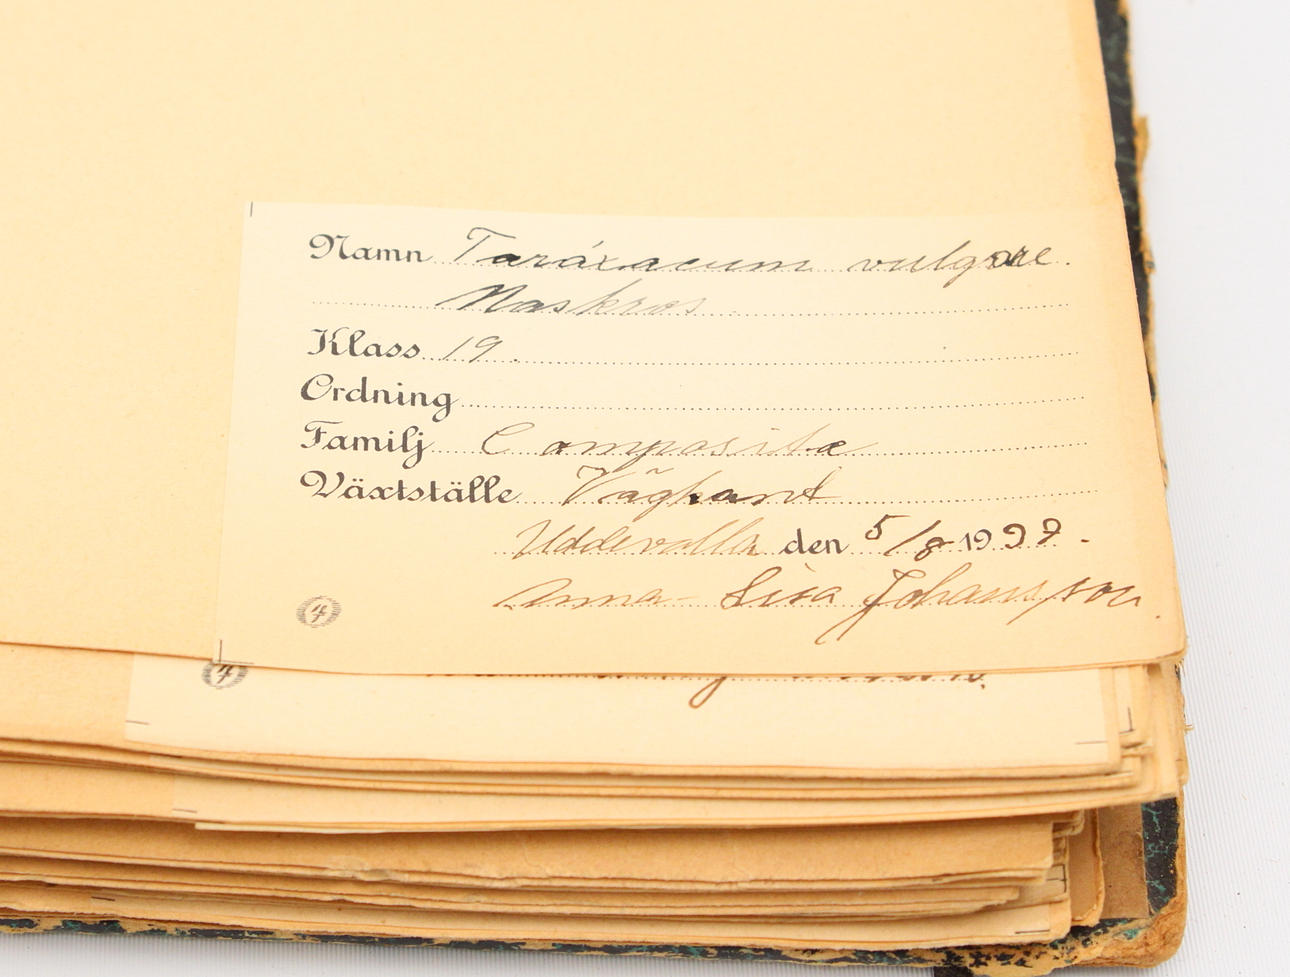 Namn Taráxacum vulgare.
Maskros
Klass 19.
Ordning
Familj Compositæ
Växtställe Vägkant
Uddevalla den 5/8 1937.
Anna-Lisa Johansson.
4
4